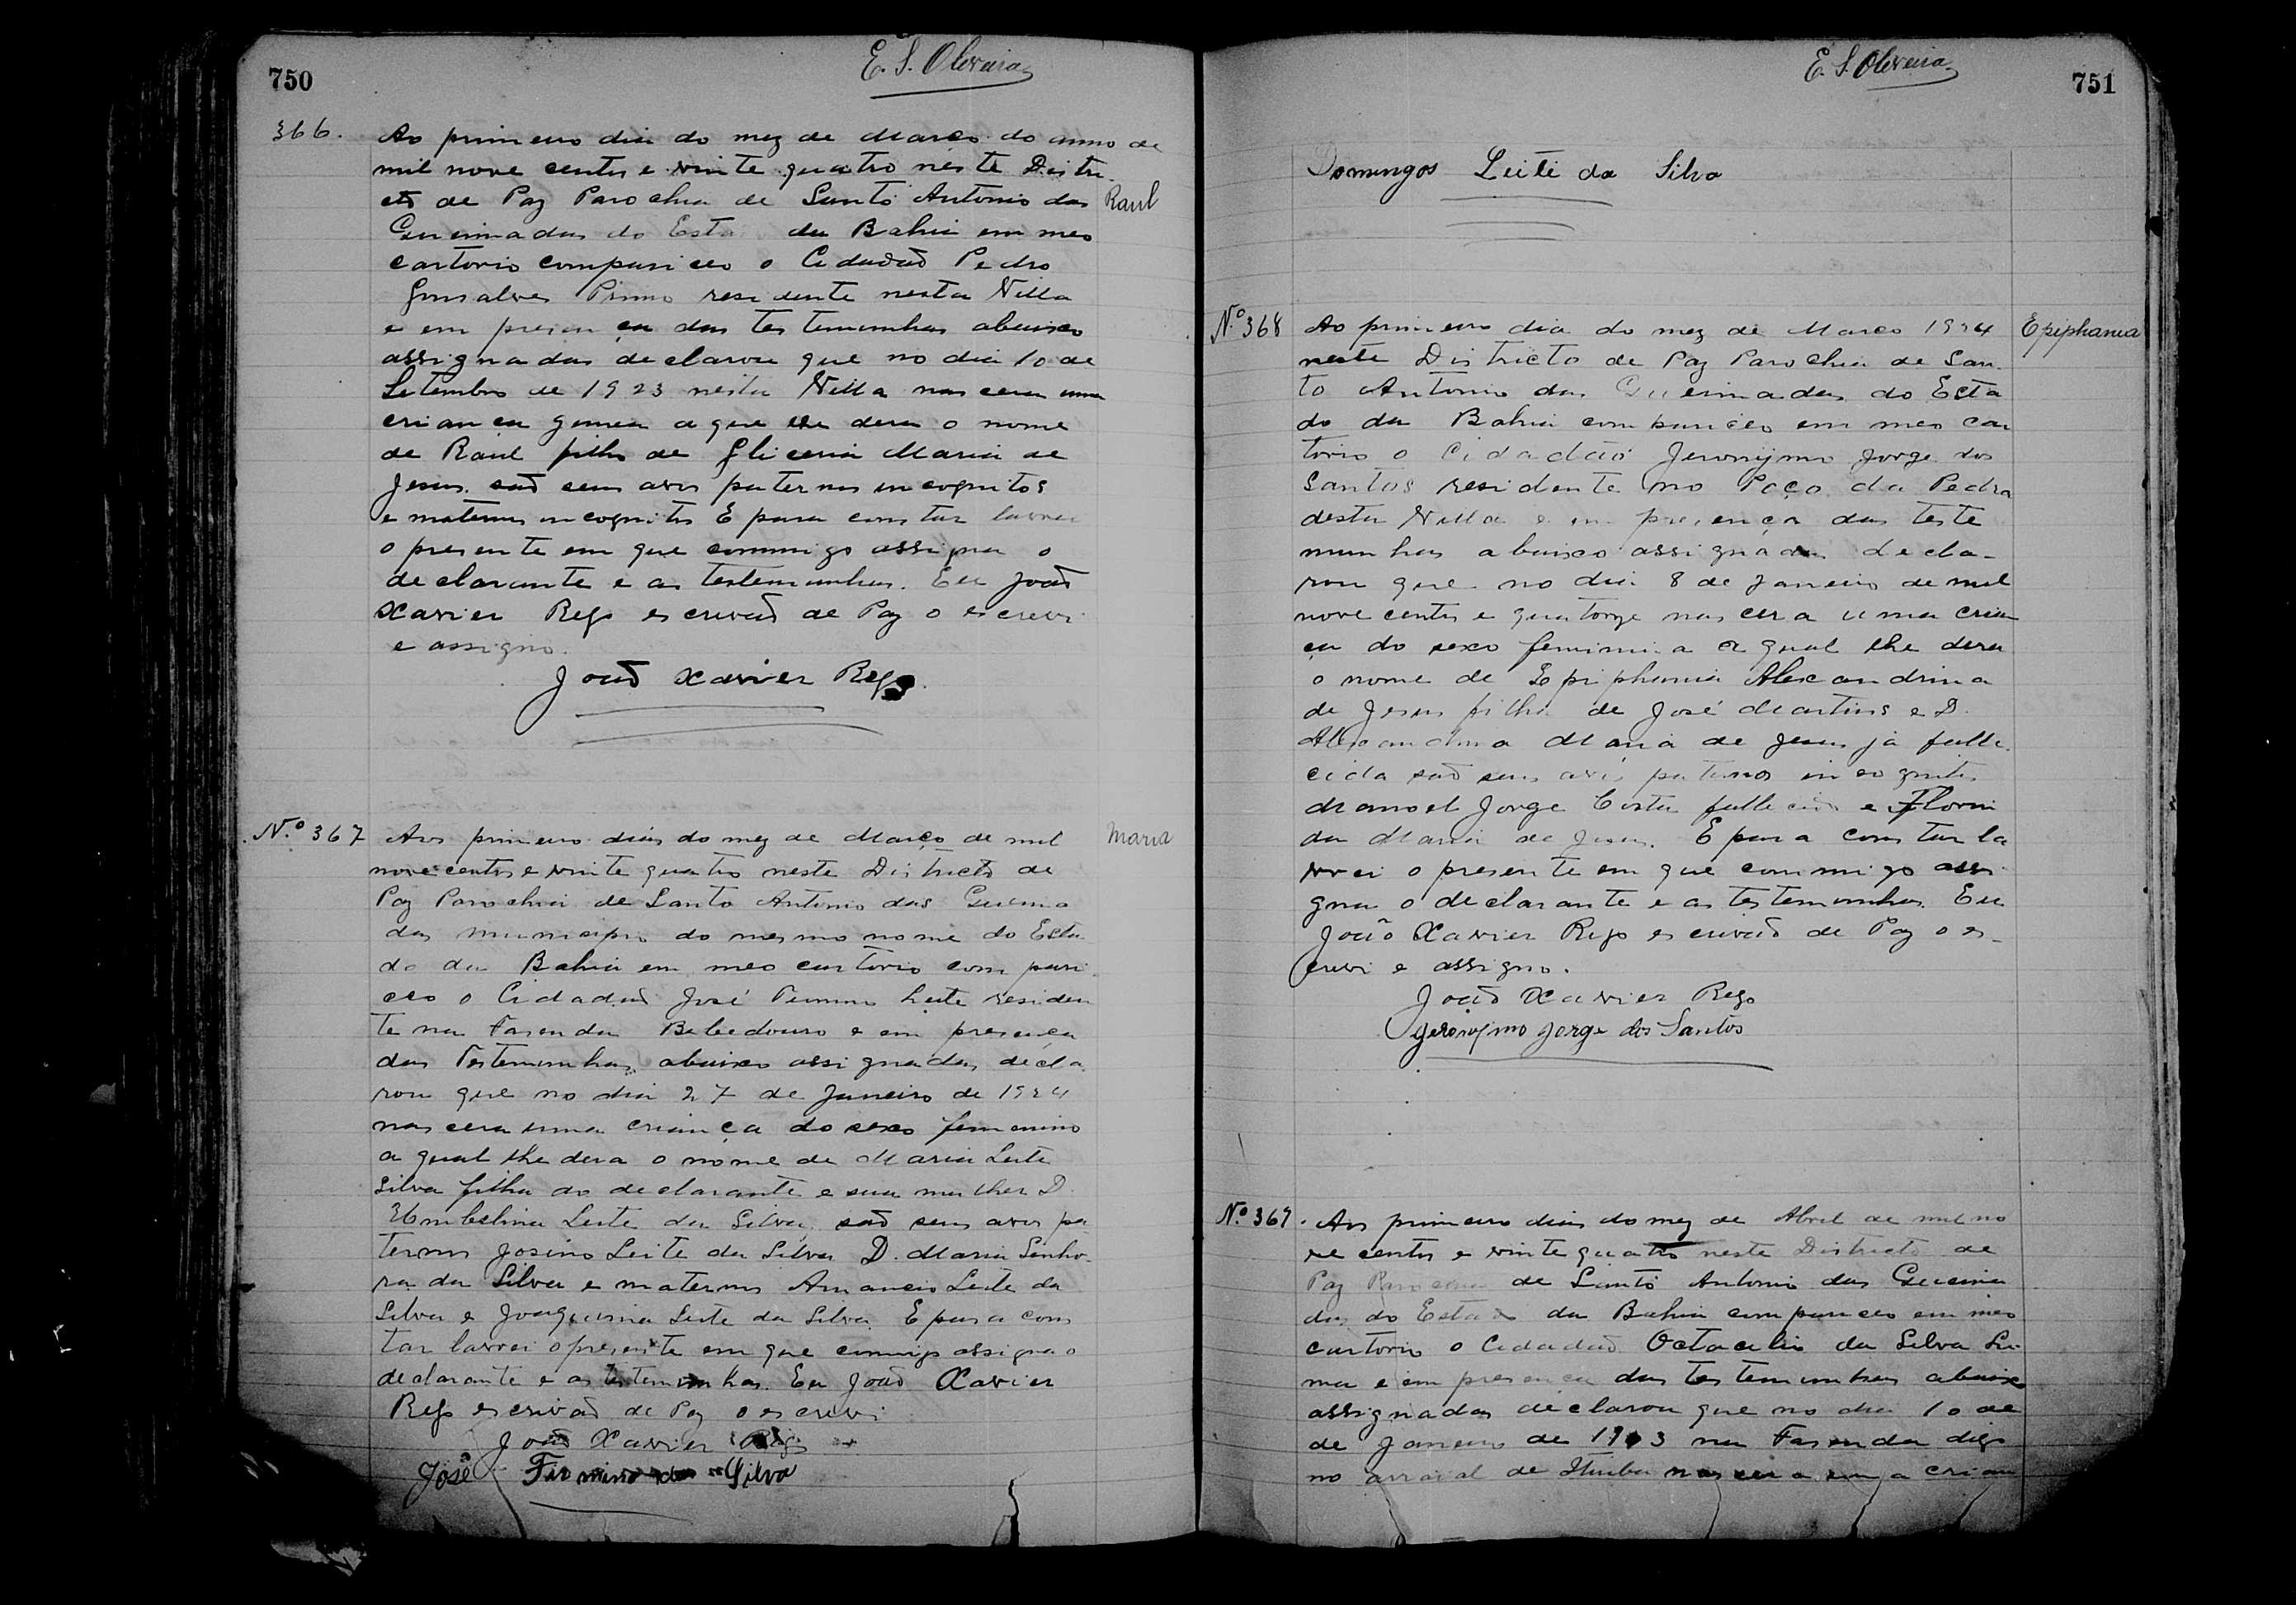 750
E. S. Oliveira
366.
Ao primeiro dia do mez de Março do anno de
mil nove centos e vinte quatro neste Distri
cto de Paz Parochia de Santo Antonio das
Raul
Queimadas do Estado da Bahia em meo
cartorio compariceo o Cidadaõ Pedro
Gonsalves Primo residente nesta Villa
e em presença das testemunhas abaixo
assignadas declarou que no dia 10 de
Setembro de 1923 nesta Villa nascera uma
criança gemea a que lhe dera o nome
de Raul filho de Gliceria Maria de
Jesus. saõ seus avos paternos incognitos
e maternos incognitos E para constar lavrei
o presente em que commigo assigna o
declarante e as testemunhas. Eu Joaõ
Xavier Rego escrivaõ de Paz o escrevi
e assigno.
Joaõ Xavier Rego.
N.º 367
Aos primeiro dias do mez de Março de mil
Maria
nove centos e vinte quatro neste Districto de
Paz Parochia de Santo Antonio das Queima
das municipio do mesmo nome do Esta
do da Bahia em meo cartorio compari
ceo o Cidadaõ José Leite residen
te na Fasenda Bebedouro e em presença
das Testemunhas abaixo assignadas decla
rou que no dia 27 de Janeiro de 1924
nascera uma criança do sexo femenino
a qual lhe dera o nome de Maria Leite
Silva filha do declarante e sua mulher D.
Umbelina Leite da Silva, saõ seus avos pa
ternos Josino Leite da Silva D. Maria Senho
ra da Silva e maternos Amancio Leite da
Silva e Joaquina Leite da Silva. E para cons
tar lavrei o presente em que commigo assigna o
declarante e as testemunhas. Eu Joaõ Xavier
Rego escrivaõ de Paz o escrevi
Joaõ Xavier Rego
José Firmino da Silva
E. S. Oliveira
751
Domingos Leite da Silva
N.º 368
Ao primeiro dia do mez de Marco 1924
Epiphania
neste Districto de Paz Parochia de San
to Antonio das Queimadas do Esta
do da Bahia compariceo em meo car
torio o Cidadão Jeronymo Jorge dos
Santos residente no Poço da Pedra
desta Villa e em presença das teste
munhas abaixo assignadas decla-
rou que no dia 8 de Janeiro de mil
nove centos e quatorze nascera uma crian
ça do sexo feminina a qual lhe dera
o nome de Epiphania Alexandrina
de Jesus filha de José Martins e D.
Alexandrina Maria de Jesus já falle
cida saõ seus avós paternos incognitos
Manoel Jorge Costa fallecido e Florin
da Maria de Jesus. E para constar la
vrei o presente em que commigo assi
gna o declarante e as testemunhas. Eu
João Xavier Rego escrivaõ de Paz o es-
crevi e assigno.
Joaõ Xavier Rego
Jeronymo Jorge dos Santos
N.º 369.
Aos primeiro dias do mez de Abril de mil no
ve centos e vinte quatro neste Districto de
Paz Parochia de Santo Antonio das Queima
das do Estado da Bahia compareceo em meo
cartorio o Cidadaõ Octacilio da Silva Li
ma e em presença das testemunhas abaixo
assignadas declarou que no dia 10 de
de Janeiro de na Fasenda digo
no arraial de Itiuba nascera uma crian